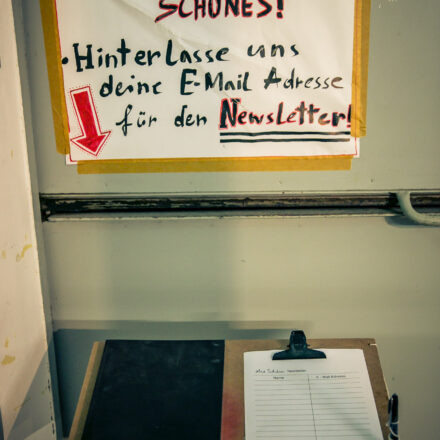 SCHÖNES!
• Hinterlasse uns
deine E-Mail Adresse
für den Newsletter!
Newsletter
Name E-Mail Adresse